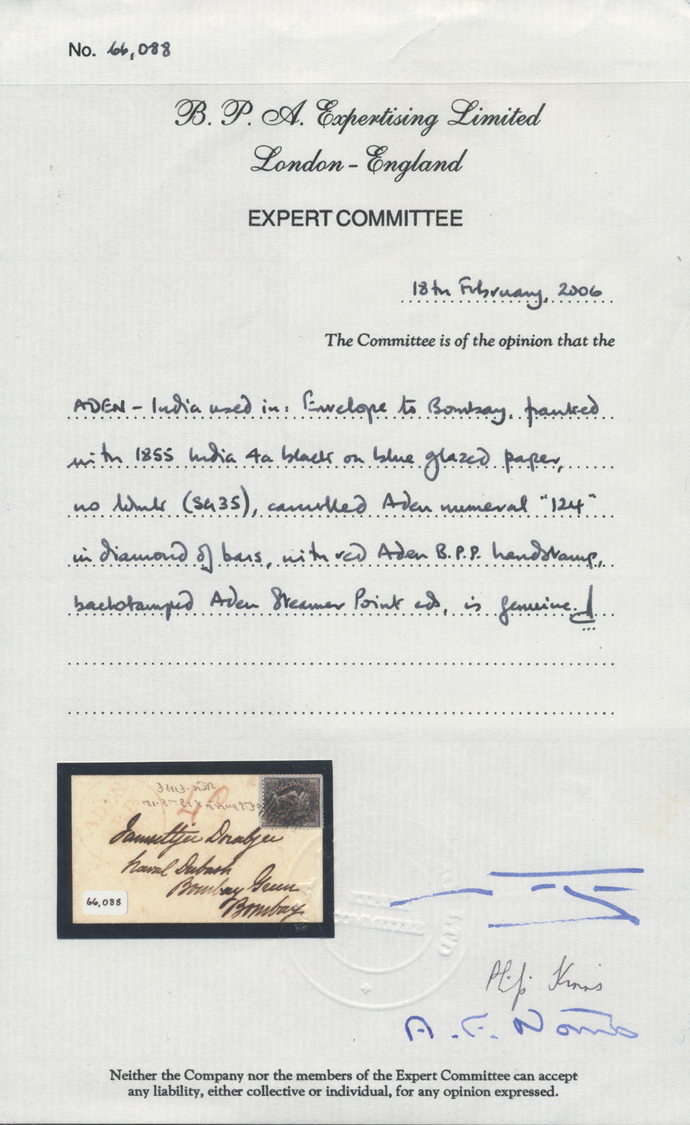 No. 66,088
B. P. A. Expertising Limited
London - England
EXPERT COMMITTEE
18th February, 2006
The Committee is of the opinion that the
ADEN - India used in: Envelope to Bombay, franked
with 1855 India 4a black on blue glazed paper,
no wmk (SG35), cancelled Aden numeral "124"
in diamond of bars, with red Aden B.P.P. handstamp,
backstamped Aden Steamer Point cds, is genuine.
Jamsetjee Dorabjee
Naval Dubash
Bombay Green
Bombay
66,088
Neither the Company nor the members of the Expert Committee can accept
any liability, either collective or individual, for any opinion expressed.